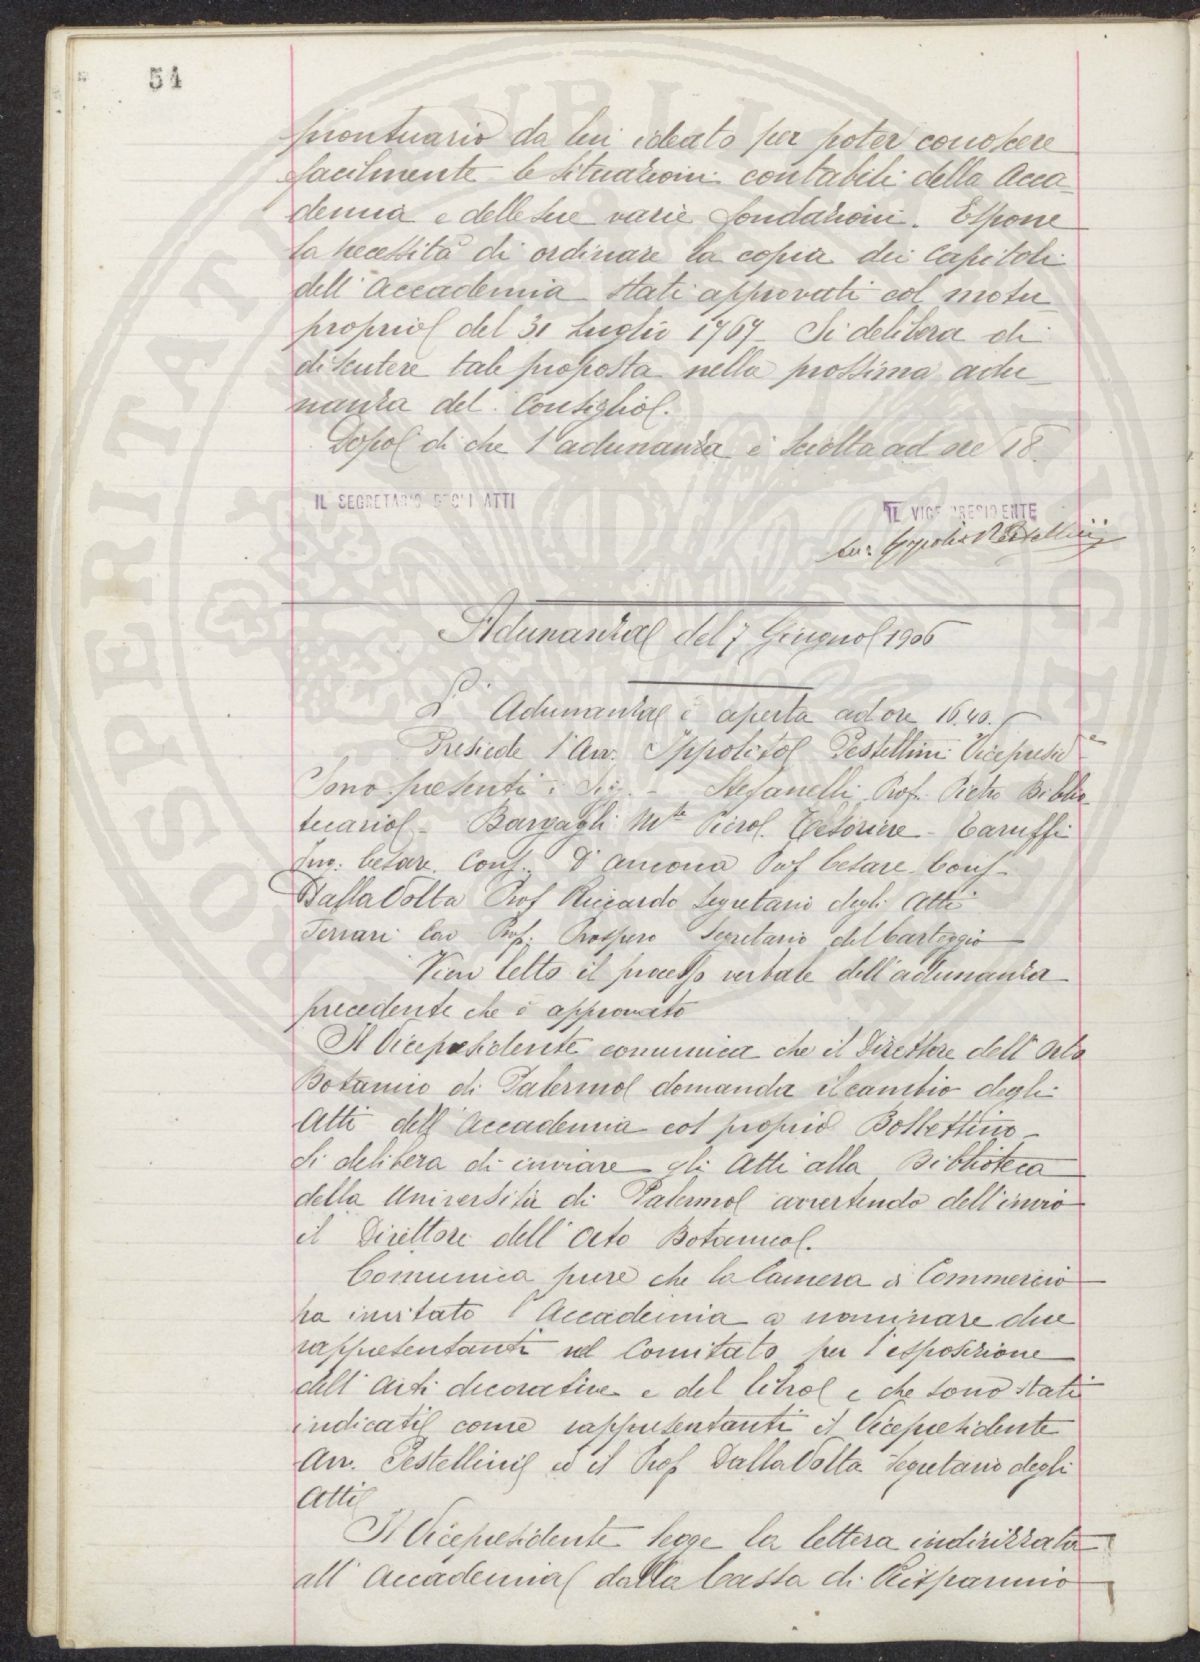 54
prontuario da lui ideato per poter conoscere
facilmente le situazioni contabili della Acca-
demia e delle sue varie fondazioni. Espone
la necessità di ordinare la copia dei Capitoli
dell'Accademia stati approvati col motu
proprio del 31 Luglio 1767 - Si delibera di
discutere tale proposta nella prossima adu-
nanza del Consiglio.
Dopo di che l'adunanza è sciolta ad ore 18.
IL SEGRETARIO DEGLI ATTI
IL VICE PRESIDENTE
Avv. Ippolito Pestellini
Adunanza del 7 Giugno 1906
L'Adunanza è aperta ad ore 16.40.
Presiede l'Avv. Ippolito Pestellini Vicepresid.e
Sono presenti i Sig. - Stefanelli Prof. Pietro Biblio-
tecario - Bargagli M.te Piero Tesoriere - Taruffi
Ing. Cesare Cons. D'Ancona Prof Cesare Cons -
Dalla Volta Prof Riccardo Segretario degli Atti
Ferrari Cav Prof. Prospero Segretario del Carteggio
Vien letto il processo verbale dell'adunanza
precedente che è approvato
Il Vicepresidente comunica che il Direttore dell'Orto
Botanico di Palermo domanda il cambio degli
Atti dell'Accademia col proprio Bollettino -
Si delibera di inviare gli Atti alla Biblioteca
della Università di Palermo avvertendo dell'invio
il Direttore dell'Orto Botanico.
Comunica pure che la Camera di Commercio
ha invitato l'Accademia a nominare due
rappresentanti nel Comitato per l'esposizione
dell'Arti decorative e del libro e che sono stati
indicati come rappresentanti il Vicepresidente
Avv. Pestellini ed il Prof Dalla Volta Segretario degli
Atti
Il Vicepresidente legge la lettera indirizzata
all'Accademia dalla Cassa di Risparmio